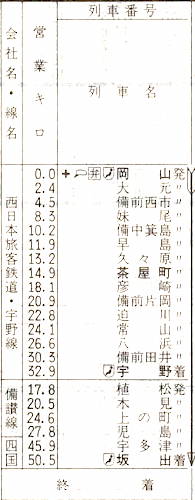 列車番号
会社名・線名
営業キロ
列車名
西日本旅客鉄道・宇野線
0.0 弁 岡山発
2.4 大元〃
4.5 備前西市〃
8.3 妹尾〃
10.2 備中箕島〃
11.9 早島〃
13.2 久々原〃
14.9 茶屋町〃
18.1 彦崎〃
20.9 備前片岡〃
22.8 迫川〃
24.1 常山〃
26.6 八浜〃
30.3 備前田井〃
32.9 宇野着
備讃線
17.8 植松発
20.5 木見〃
24.6 上の町〃
27.8 児島〃
四国
45.9 宇多津〃
50.5 坂出着
終着